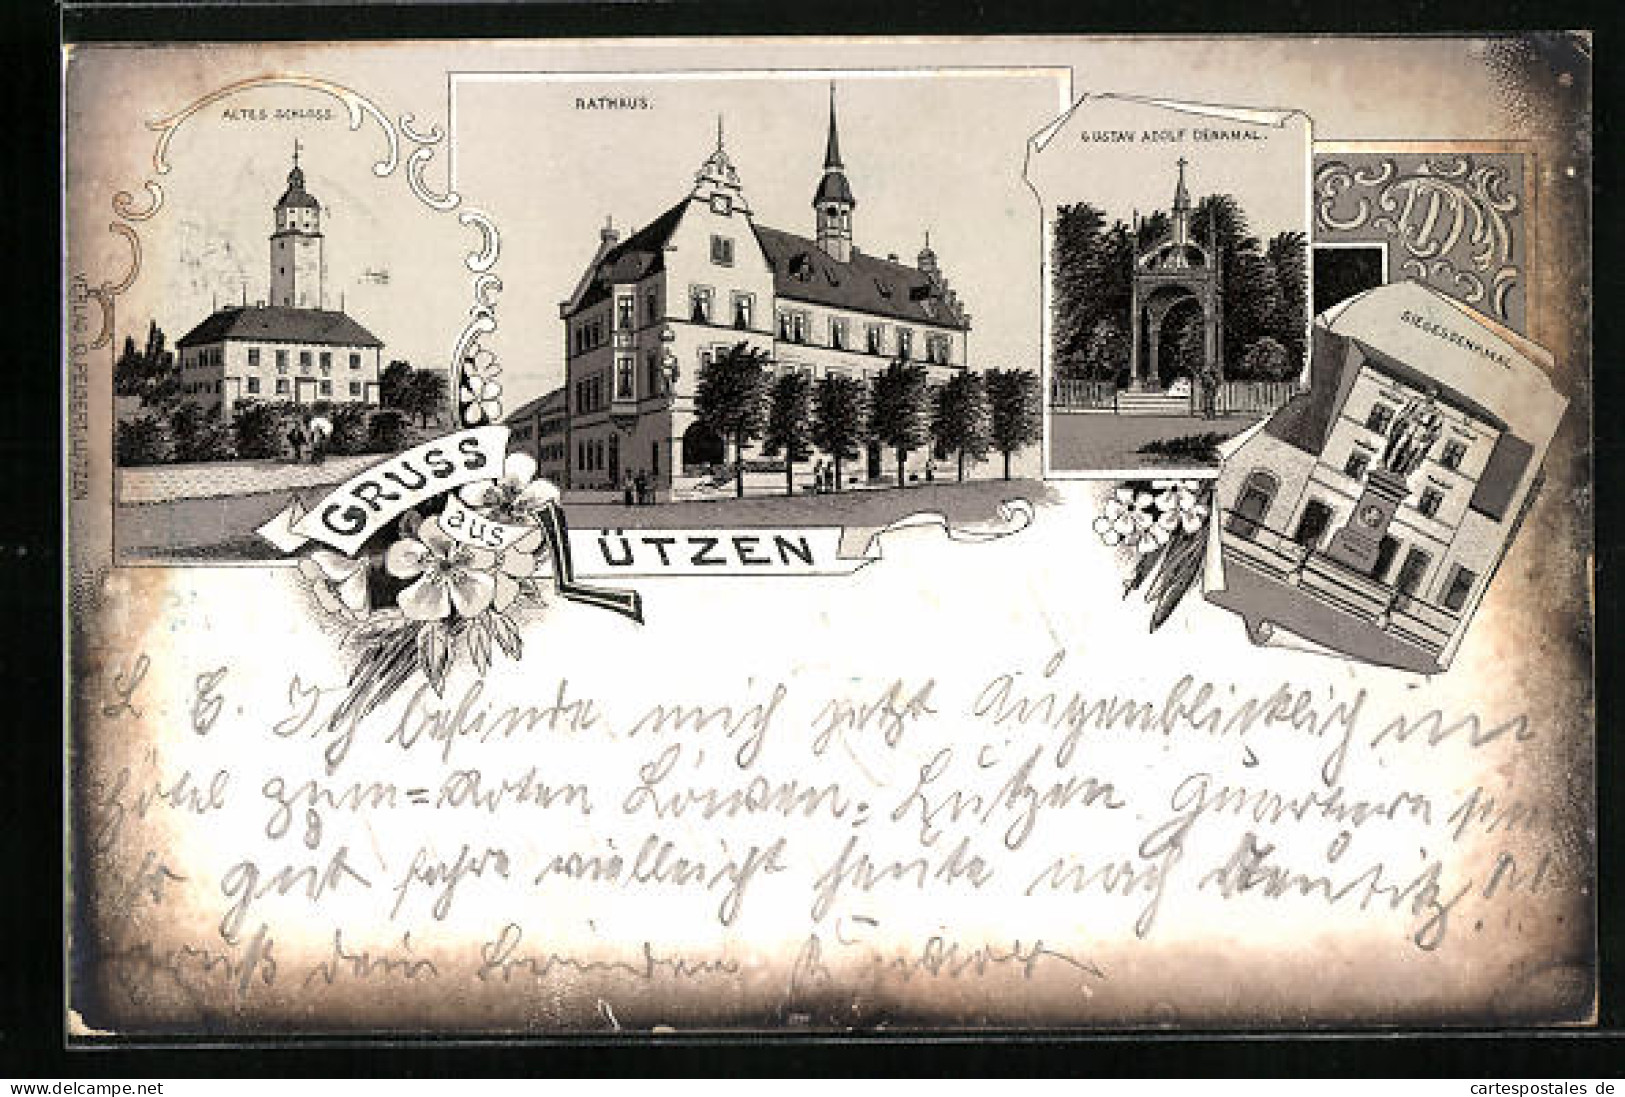 ALTES SCHLOSS.
RATHAUS.
GUSTAV ADOLF DENKMAL.
SIEGESDENKMAL.
VERLAG O. REICHERT LÜTZEN
GRUSS
aus
LÜTZEN
L. E. Ich befinde mich jetzt Augenblicklich im
Hôtel zum = Roten Löwen = Lützen. Quartiere
gut fahre vielleicht heute nach Teuditz.
Gruß dein
cartespostales de